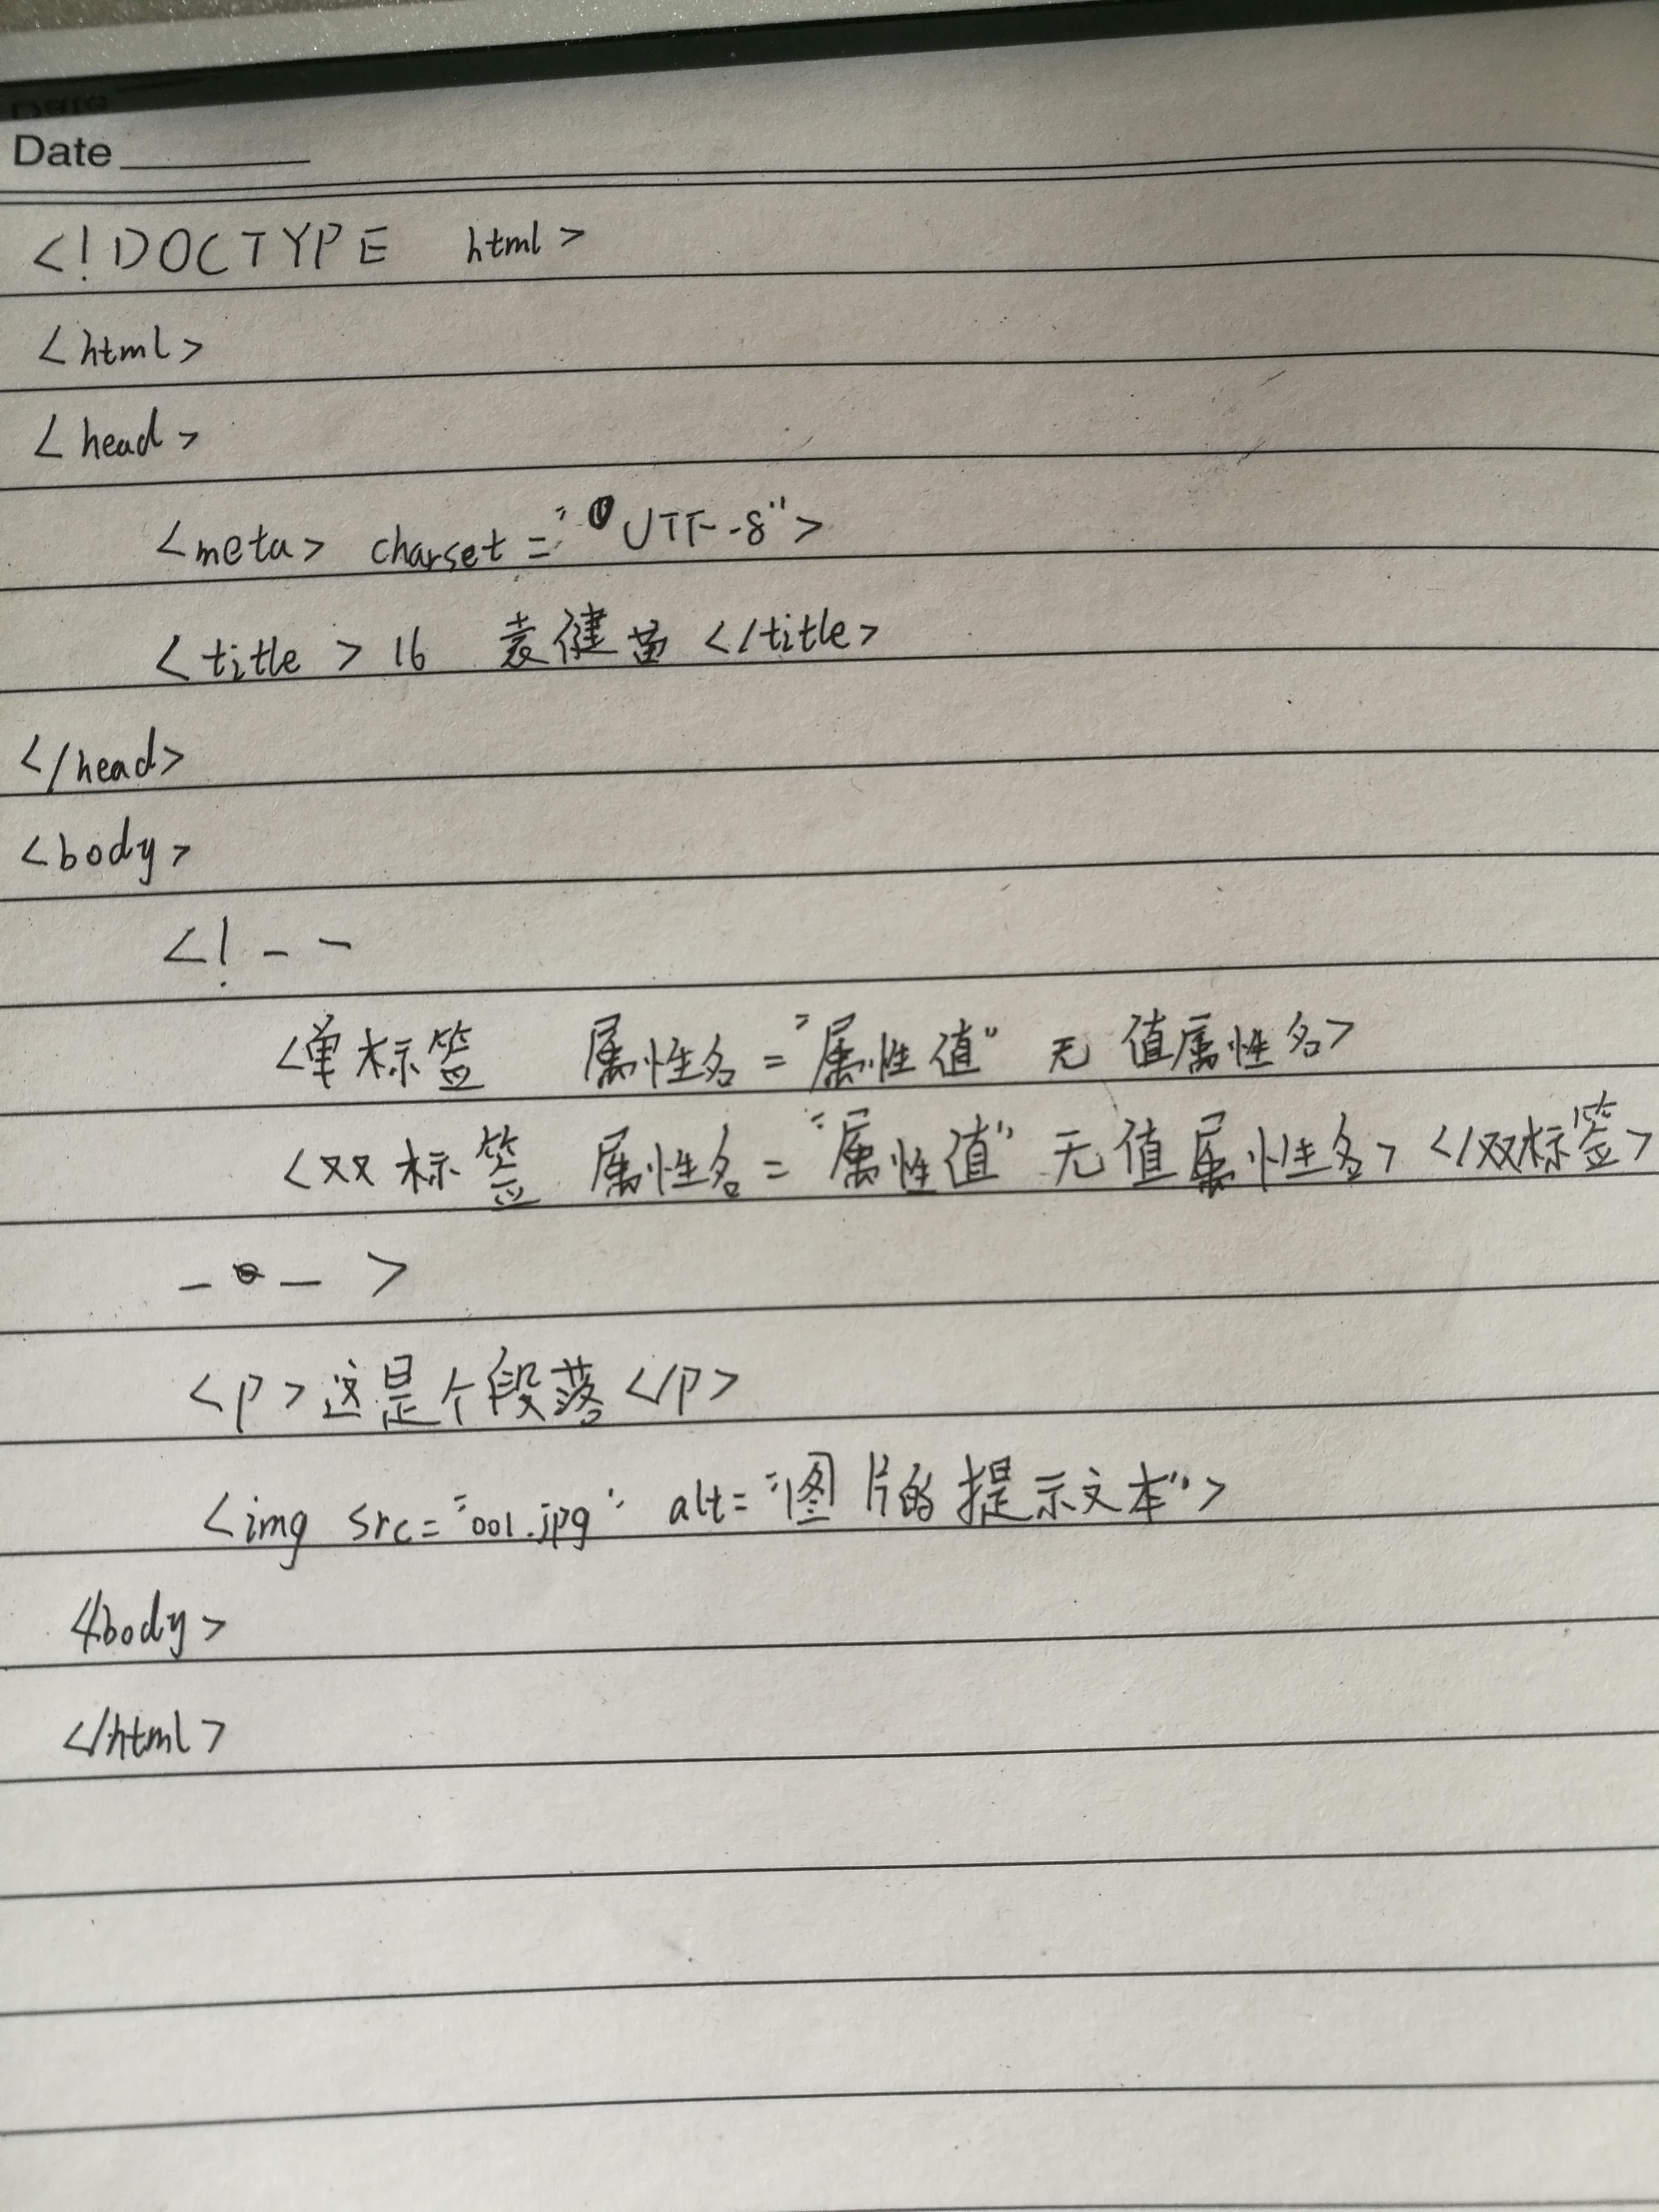 Date
Date
<!DOCTYPE html>
<html>
<head>
<meta> charset="UTF-8">
<title>16 袁健苗</title>
</head>
<body>
<!--
<单标签 属性名="属性值" 无值属性名>
<双标签 属性名="属性值" 无值属性名></双标签>
-->
<p>这是个段落</p>
<img src="001.jpg" alt="图片的提示文本">
</body>
</html>